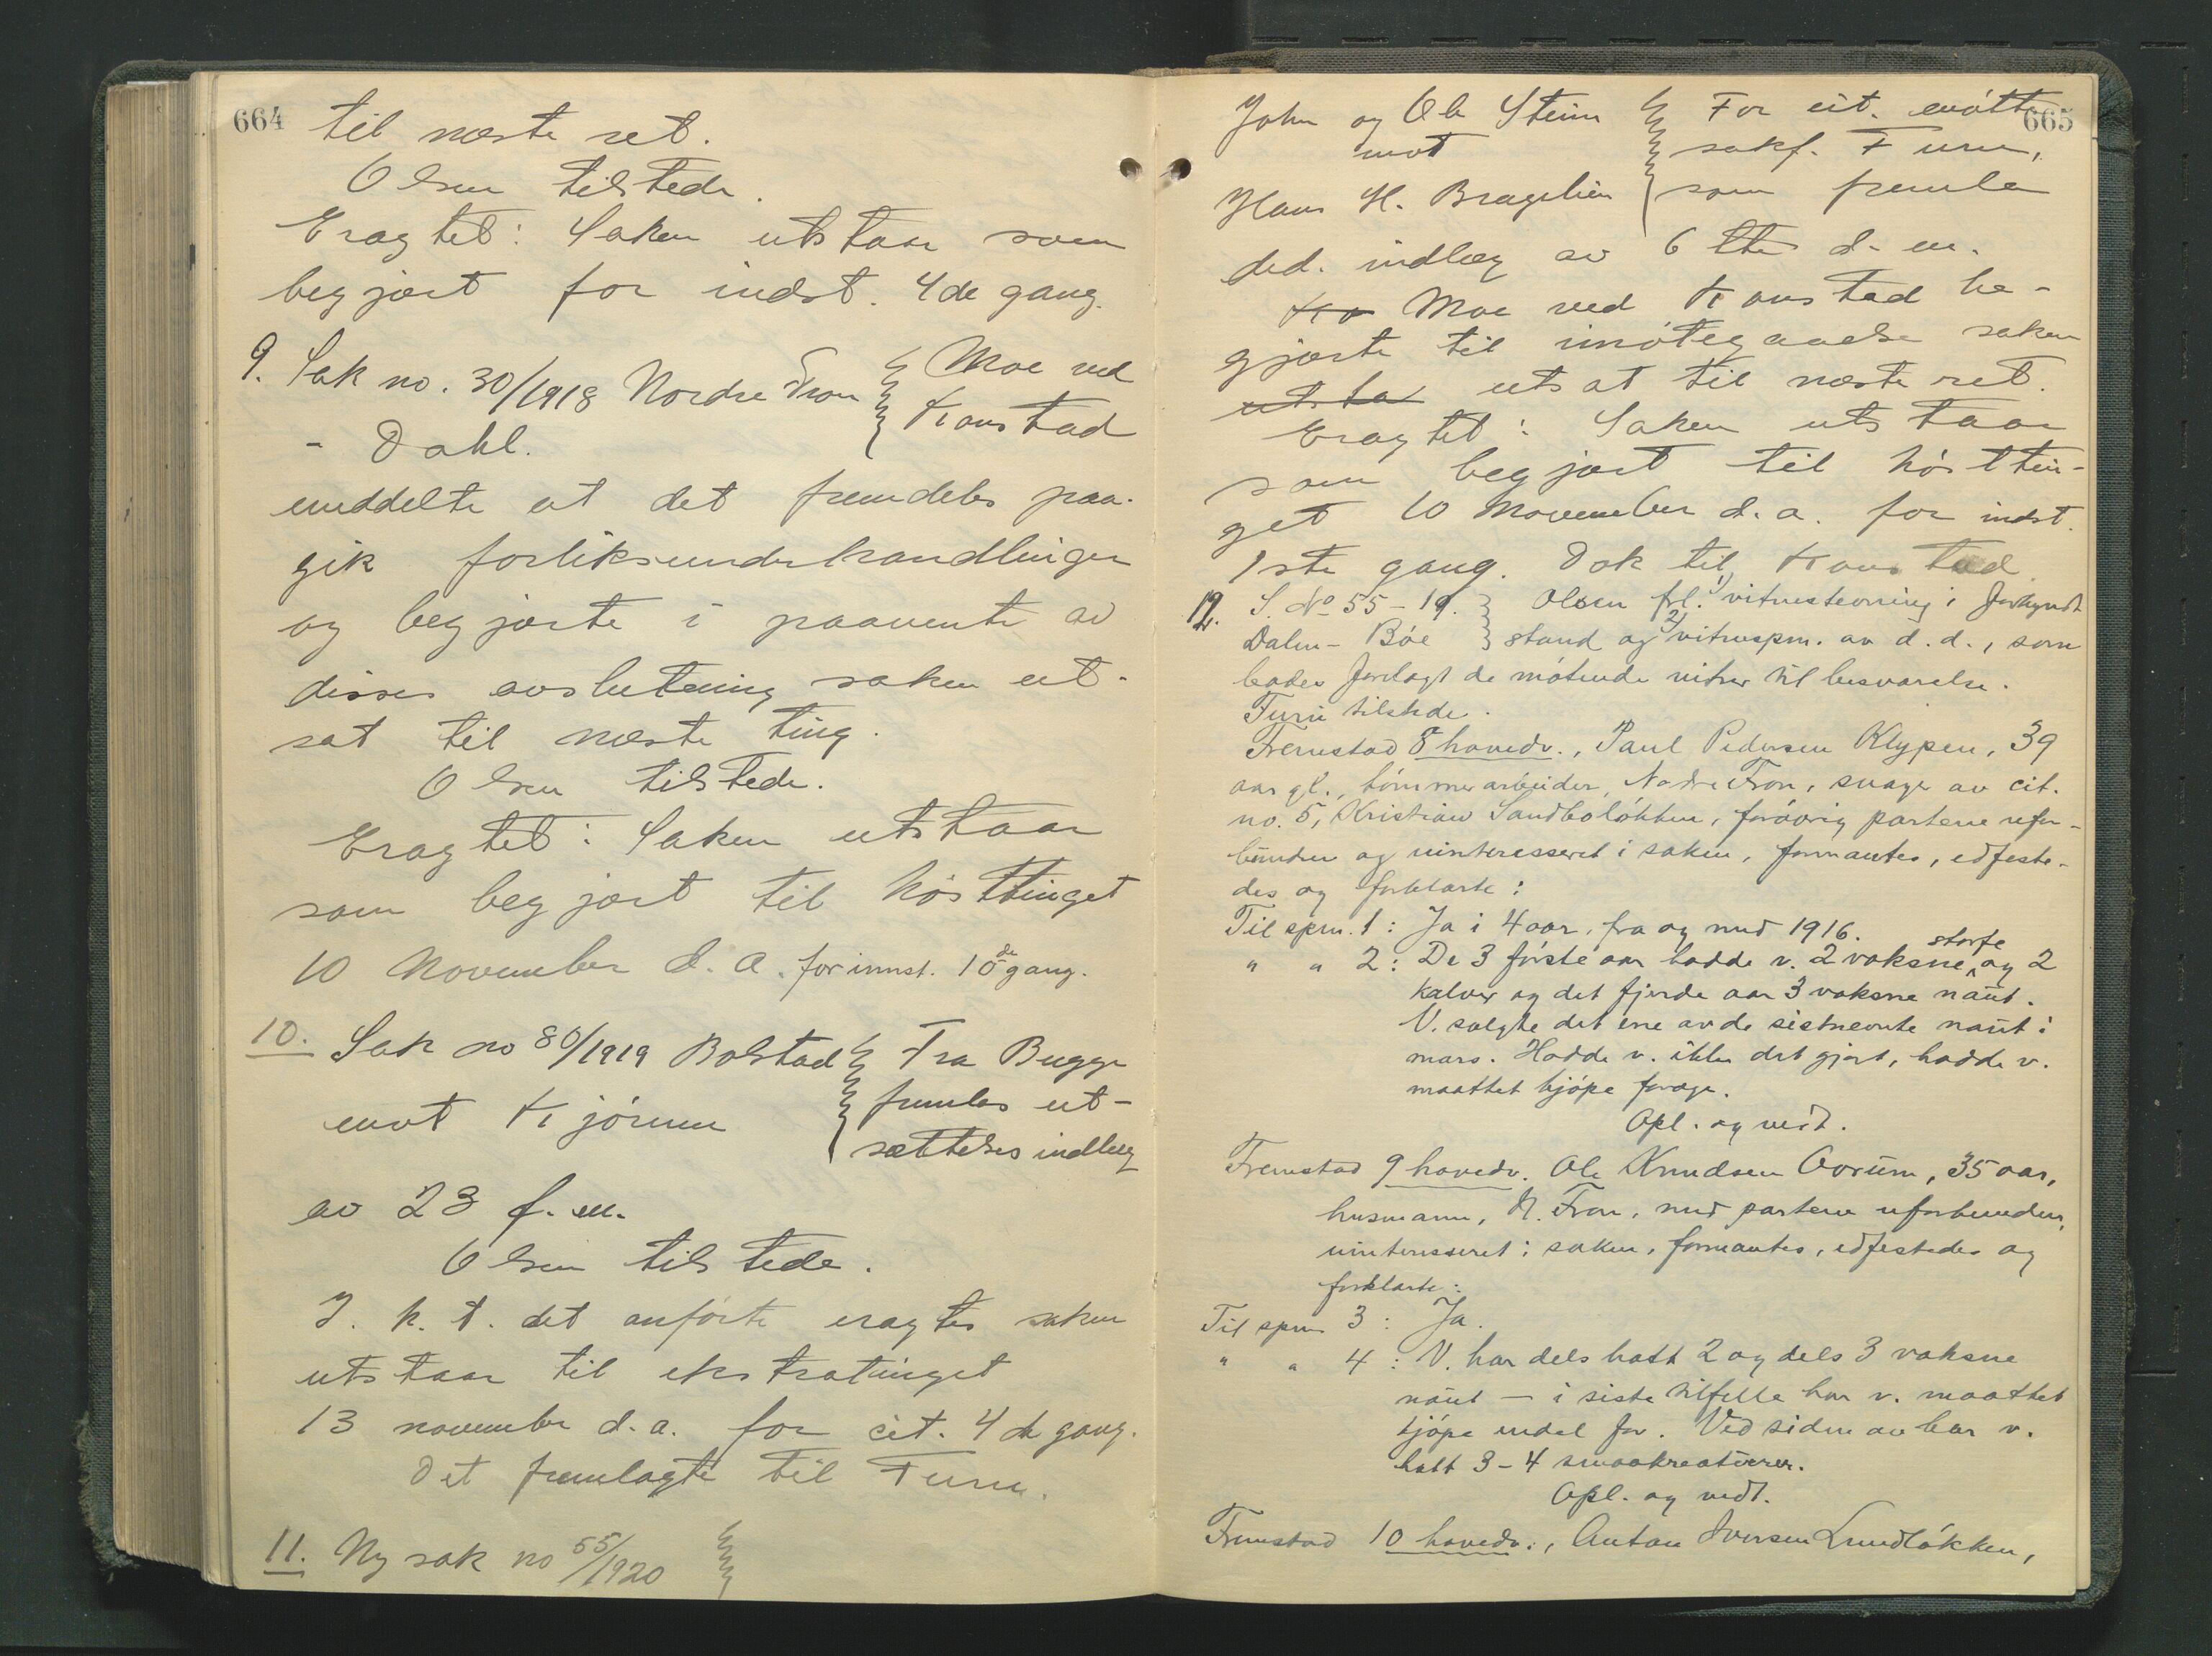 664
til næste ret.
Olsen tilstede.
Eragtet: Saken utstaar som
begjært for indst. 4de gang.
9. Sak no. 30/1918 Nordre Fron } Moe ved
- Dahl. } Konstad
meddelte at det fremdeles paa-
gik forliksunderhandlinger
og begjærte i paavente av
disses avslutning saken ut-
sat til næste ting.
Olsen tilstede.
Eragtet: Saken utstaar
som begjært til hösttinget
10 November d. a. for innst. 10de gang.
10. Sak no 80/1919 Bolstad } Fra Bugge
mot Kjörum } fremlas ut-
sættelses indlæg
av 23 f. m.
Olsen tilstede.
I. h. t. det anförte eragtes saken
utstaar til ekstratinget
13 november d. a. for cit. 4de gang.
Det fremlagte til Furu.
11. Ny sak no 55/1920 }
665
John og Ole Steim } For cit. mötte
mot } sakf. Furu,
Hans H. Bragelien } som fremla
ded. indlæg av 6te d. m.
Ko Moe ved Konstad be-
gjærte til imötegaaelse saken
utsta utsat til næste ret.
Eragtet: Saken utstaar
som begjært til hösttin-
get 10 November d. a. for indst.
1ste gang. Dok til Konstad.
12. S. No 55-19. } Olsen frl. 1) vitnestevning i forkyndt
Dalen - Böe } stand og 2) vitnespm. av d. d., som
bades forelagt de mötende vitner til besvarelse.
Furu tilstede.
Fremstod 8 hovedv., Paul Pedersen Klypen, 39
aar gl., tömmerarbeider, Nordre Fron, svager av cit.
no. 5, Kristian Sandbolökken, forövrig partene ufor-
bunden og uinteresseret i saken, formantes, edfeste-
des og forklarte:
Til spm. 1: Ja i 4 aar, fra og med 1916.
" " 2: De 3 förste aar hadde v. 2 voksne storfe og 2
kalver og det fjerde aar 3 voksne naut.
V. solgte det ene av de sistnevnte naut i
mars. Hadde v. ikke det gjort, hadde v.
maattet kjöpe forage.
Opl. og vedt.
Fremstod 9 hovedv. Ole Knudsen Aarum, 35 aar,
husmann, N. Fron, med partene uforbunden,
uinteresseret i saken, formantes, edfestedes og
forklarte:
Til spm 3: Ja.
" " 4: V. har dels hatt 2 og dels 3 voksne
naut — i siste tilfelle har v. maattet
kjöpe endel for. Ved siden av har v.
hatt 3-4 smaakreaturer.
Opl. og vedt.
Fremstod 10 hovedv., Anton Iversen Lundlökken,